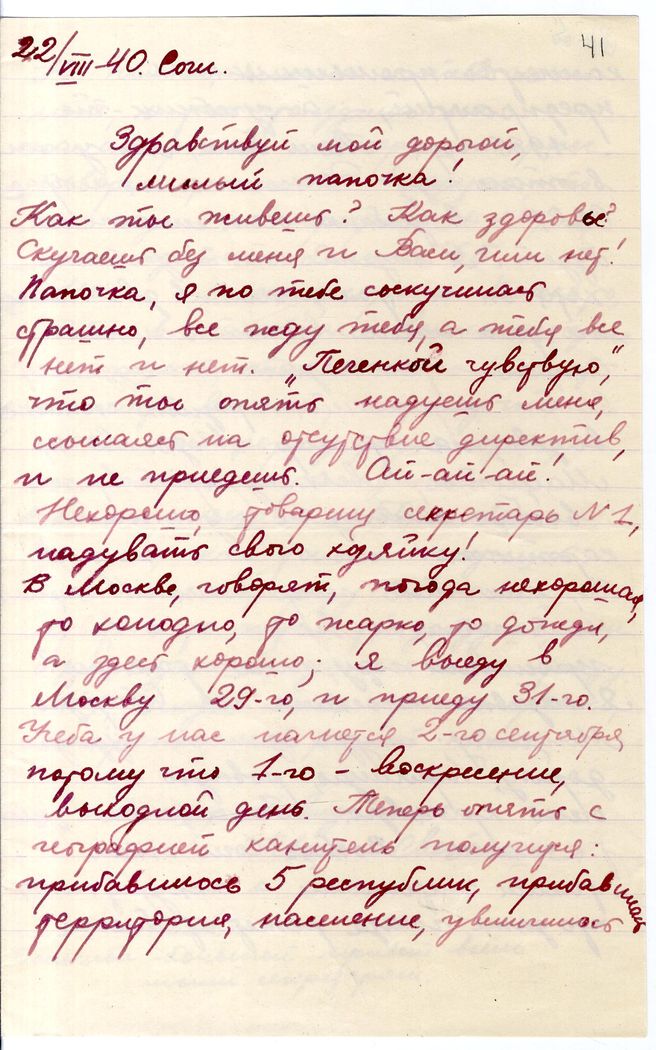 41
22/VIII-40. Сочи.
Здравствуй мой дорогой,
милый папочка!
Как ты живешь? Как здоровье?
Скучаешь без меня и Васи, или нет?
Папочка, я по тебе соскучилась
страшно, все жду тебя, а тебя все
нет и нет. „Печенкой чувствую",
что ты опять надуешь меня,
сошлешься на отсутствие директив,
и не приедешь. Ай-ай-ай!
Нехорошо, товарищ секретарь N 1,
надувать свою хозяйку!
В Москве, говорят, погода нехорошая,
то холодно, то жарко, то дожди,
а здесь хорошо; я выеду в
Москву 29-го, и приеду 31-го.
Учеба у нас начнется 2-го сентября,
потому что 1-го - воскресение,
выходной день. Теперь опять с
географией канитель получится:
прибавилось 5 республик, прибавилась
территория, население, увеличилось